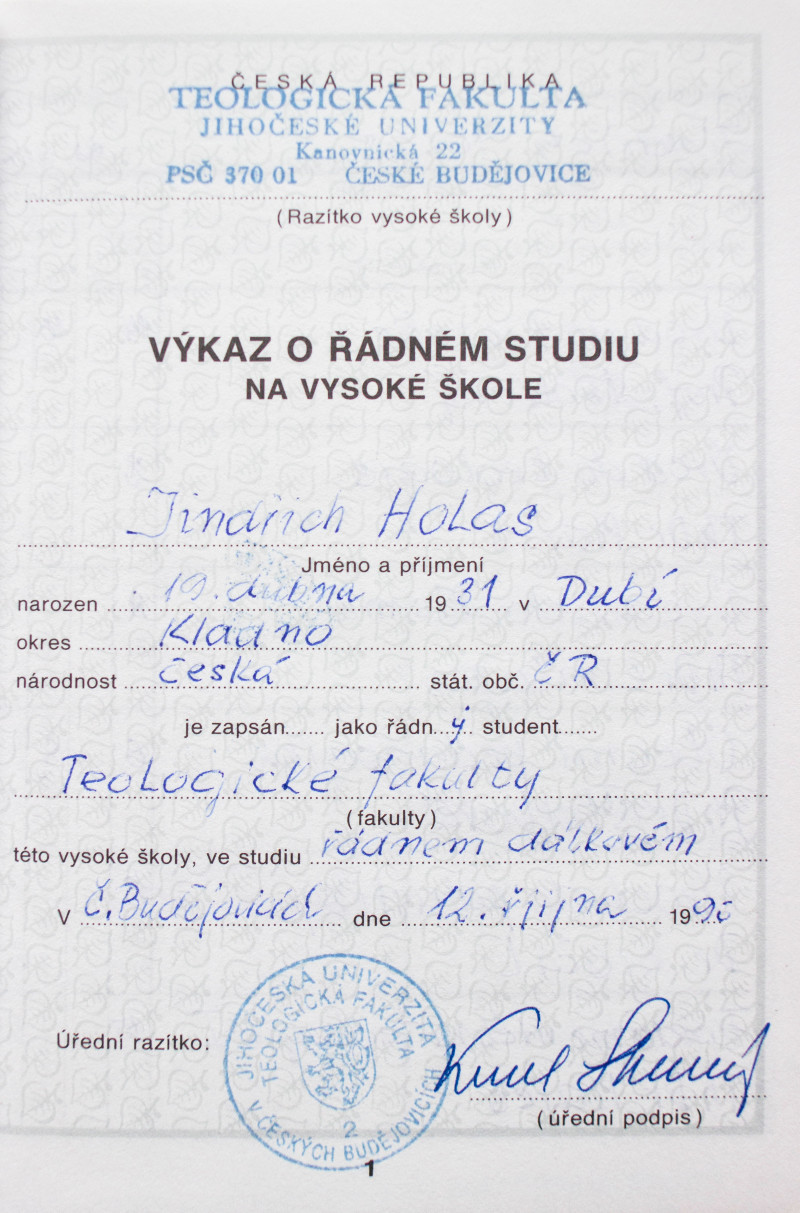 ČESKÁ REPUBLIKA
TEOLOGICKÁ FAKULTA
JIHOČESKÉ UNIVERZITY
Kanovnická 22
PSČ 370 01 ČESKÉ BUDĚJOVICE
(Razítko vysoké školy)
VÝKAZ O ŘÁDNÉM STUDIU
NA VYSOKÉ ŠKOLE
Jindřich Holas
Jméno a příjmení
narozen 19. dubna 1931 v Dubí
okres Kladno
národnost česká stát. obč. ČR
je zapsán jako řádný student
Teologické fakulty
(fakulty)
této vysoké školy, ve studiu řádném dálkovém
V Č. Budějovicích dne 12. října 199
JIHOČESKÁ UNIVERZITA
TEOLOGICKÁ FAKULTA
Úřední razítko:
2
V ČESKÝCH BUDĚJOVICÍCH
(úřední podpis)
1